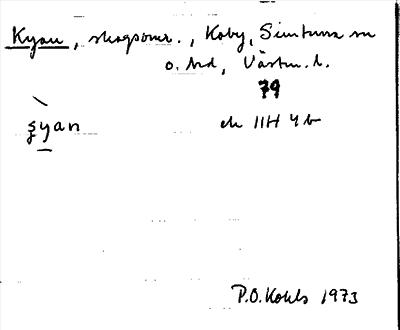 Kyan, skogsområ., Kaby, Simtuna sn
o. hd, Västm. l.
79
şyan
ek 11H 4b
P.O.Kohls 1973